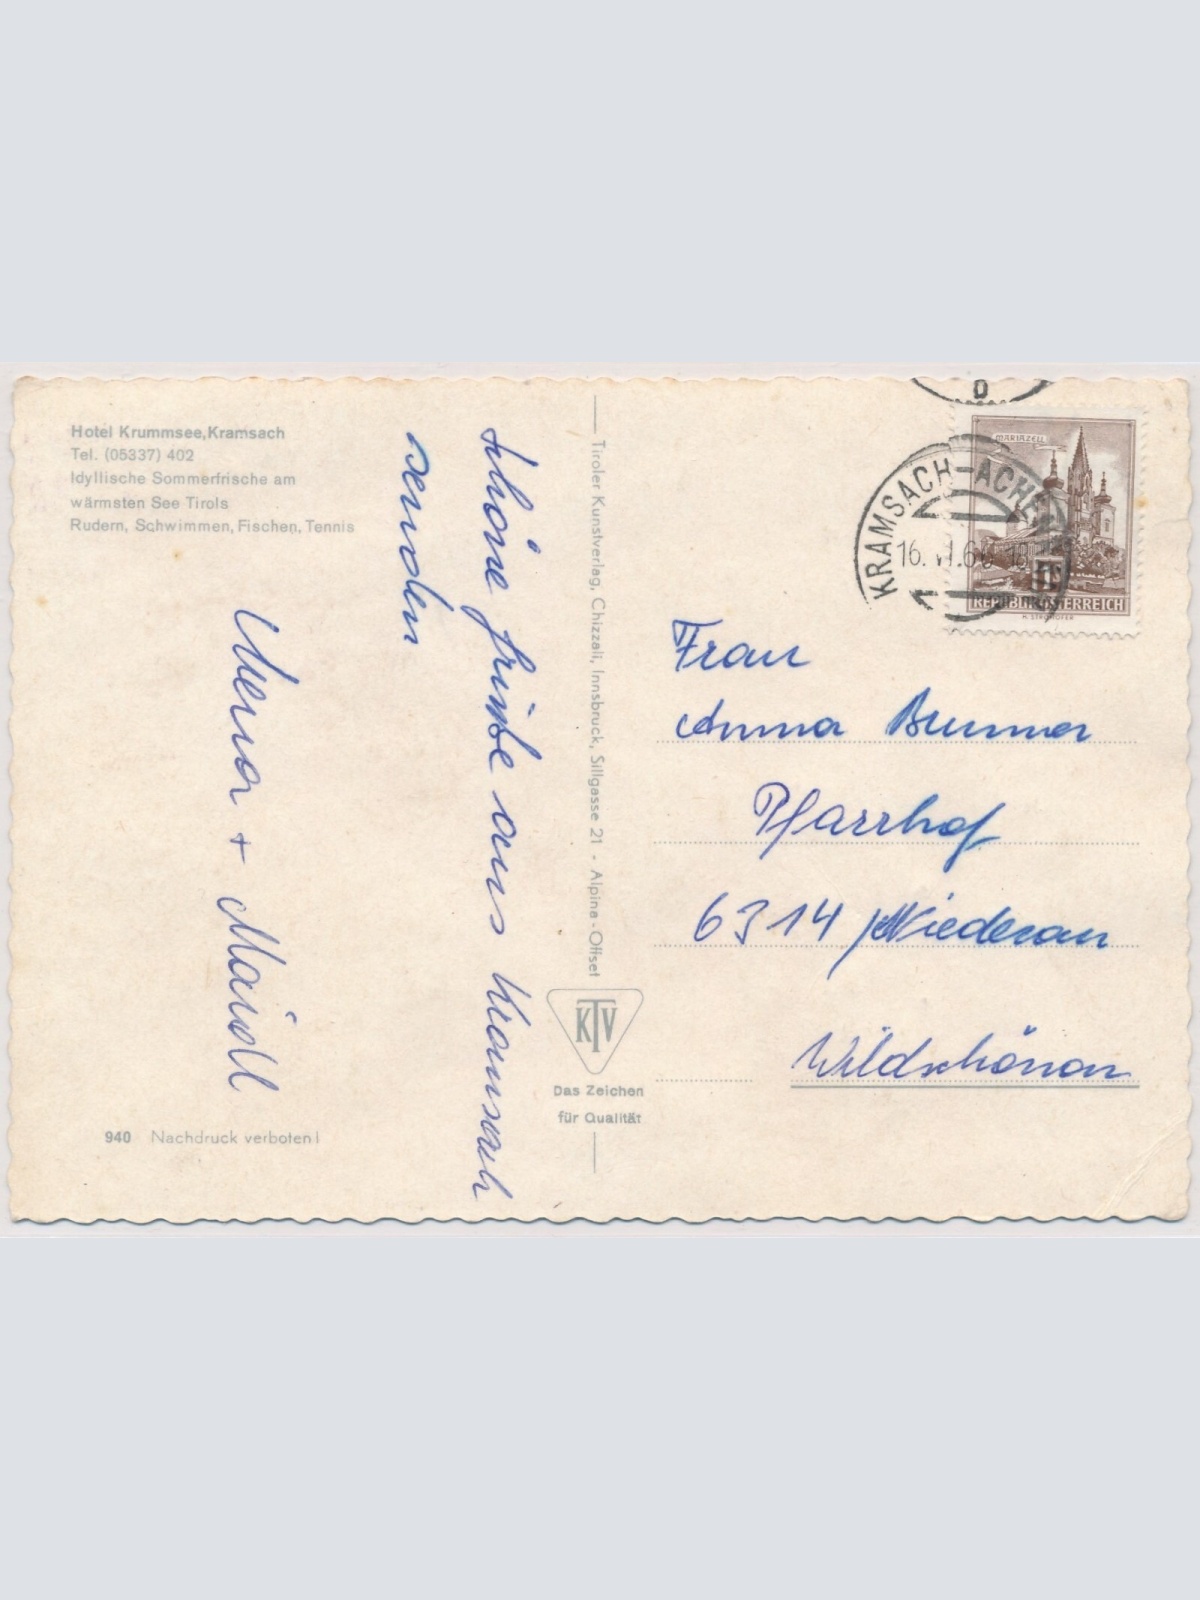 Hotel Krummsee, Kramsach
Tel. (05337) 402
Idyllische Sommerfrische am
wärmsten See Tirols
Rudern, Schwimmen, Fischen, Tennis
Schöne Grüße aus Kramsach
senden
+ Maidl
940 Nachdruck verboten!
Tiroler Kunstverlag, Chizzali, Innsbruck, Sillgasse 21 - Alpina-Offset
KTV
Das Zeichen
für Qualität
D
KRAMSACH-ACHEN
16.
MARIAZELL
1S
REPUBLIK ÖSTERREICH
H. STROHOFER
Frau
Anna Brunner
Pfarrhof
6314 Niederau
Wildschönau